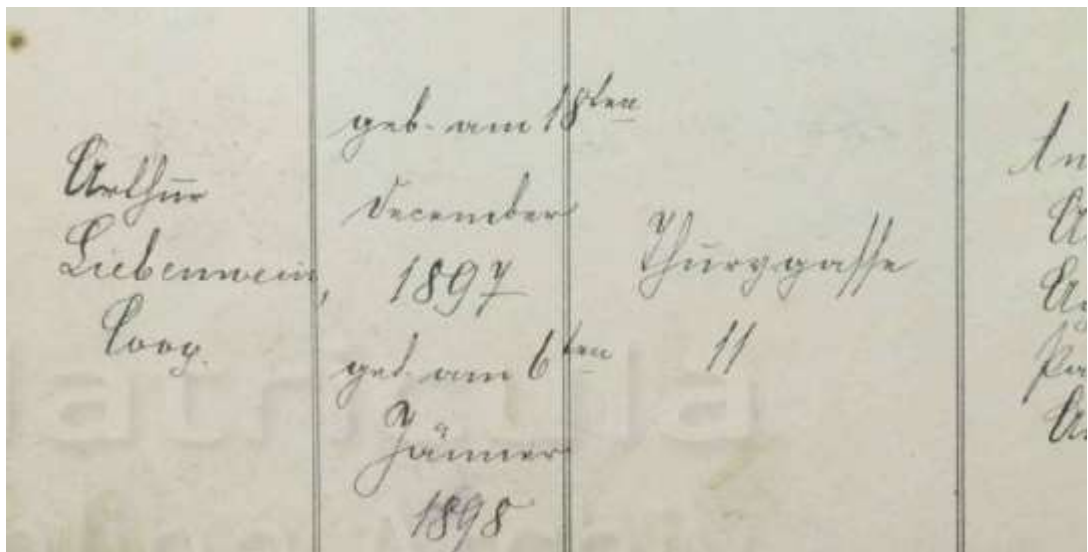 Arthur
Liebenwein,
Coop.
geb. am 18ten
December
1897
get. am 6ten
Jänner
1898
Thurygasse
11